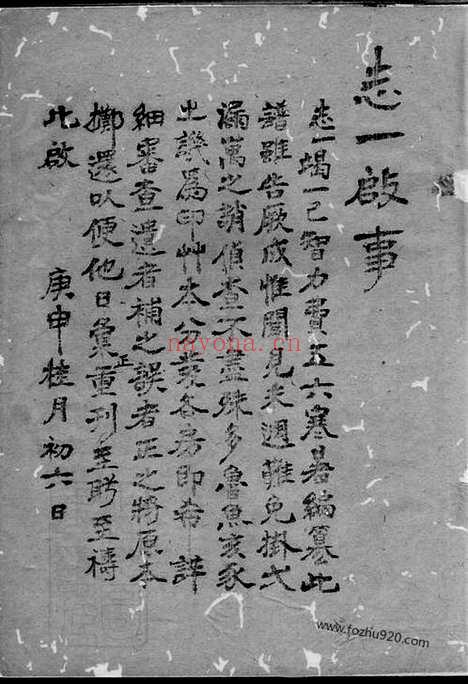 志一啟事
志一竭一己智力費五六寒暑編纂此
譜雖告厥成惟聞見未週難免掛弋
漏萬之誚偵查不盡殊多魯魚亥豕
之譏爲印艸本分葉各房即希 詳
細審查遺者補之誤者正之將原本
擲還以便他日彙正重刊至盼至禱
此啟 庚申桂月初六日
nayona.cn
www.fozhu920.com